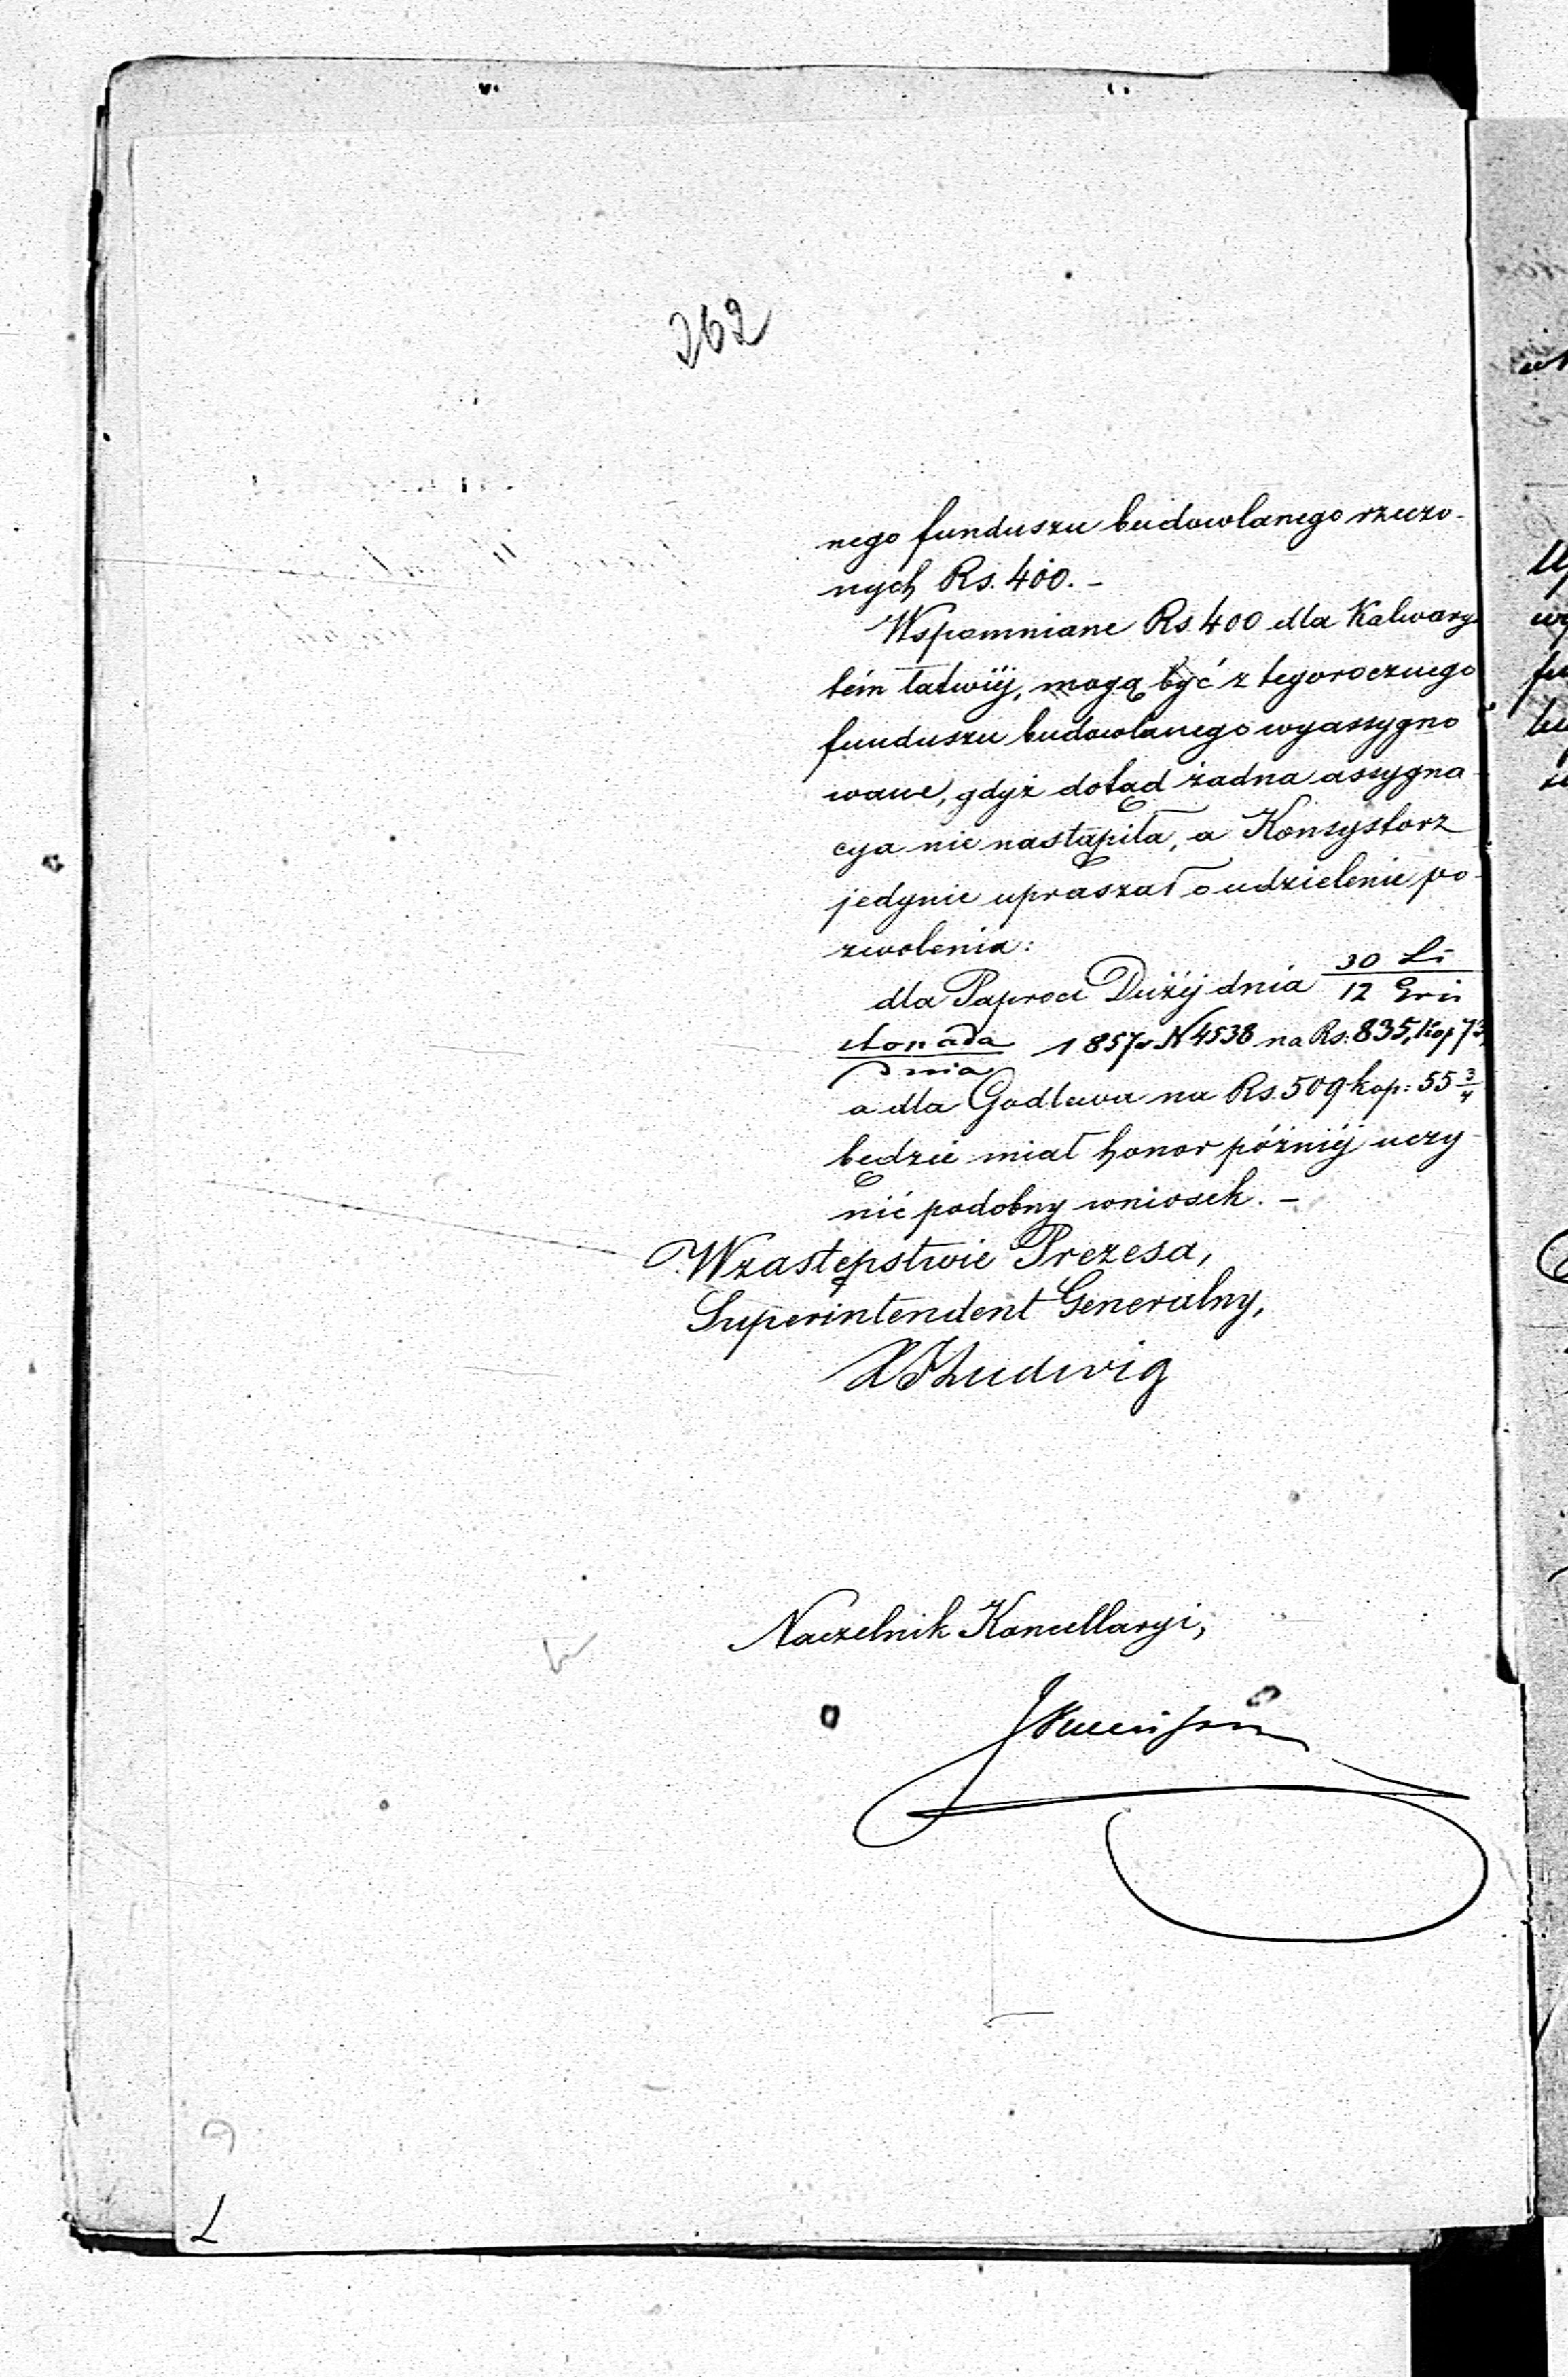 262
nego funduszu budowlanego rzeczo-
nych Rs. 400. -
Wspomniane Rs 400 dla Kalwaryi
tém łatwiéj, mogą być z tegorocznego
funduszu budowlanego wyassygno
wane, gdyż dotąd żadna assygna-
cya nie nastąpiła, a Konsystorz
jedynie upraszał o udzielenie po-
zwolenia:
dla Paproci Dużéj dnia 30 Li
12 Gru
stopada 1857 r N 4538 na Rs: 835, kop 73,
dnia
a dla Godlewa na Rs. 509 kop: 55 3/4
będzie miał honor późniéj uczy-
nić podobny wniosek. -
W zastępstwie Prezesa,
Superintendent Generalny,
Ludwig
Naczelnik Kancellaryi,